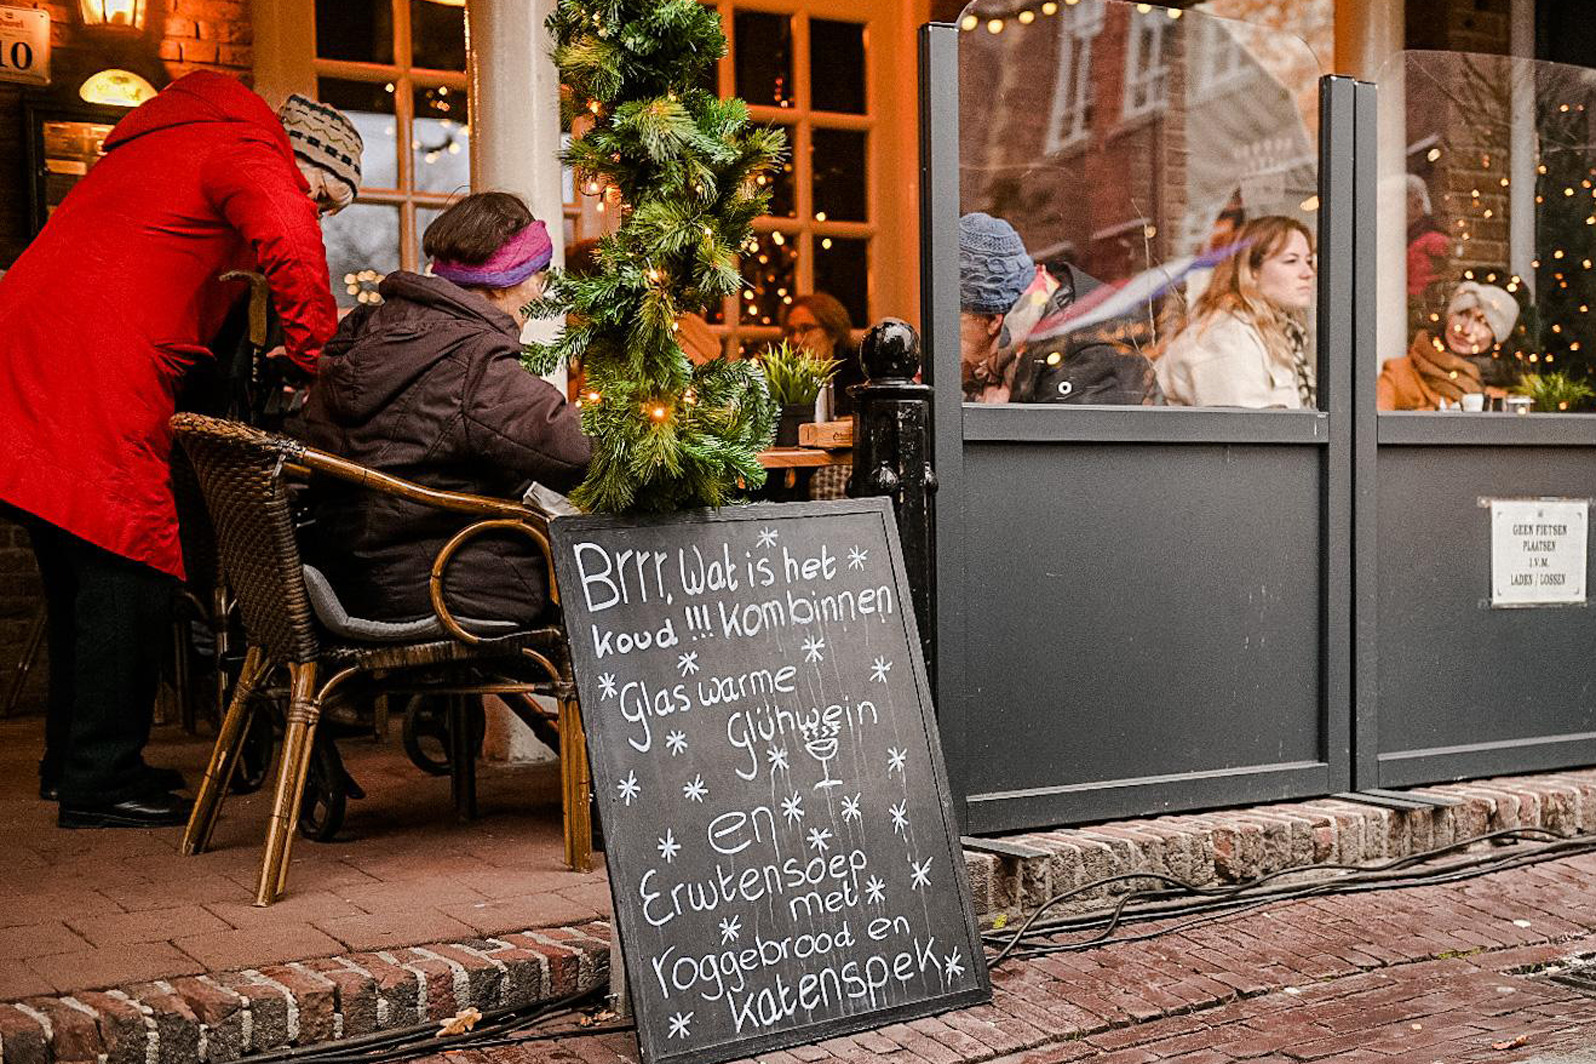 10
Brrr, Wat is het
koud !!! kombinnen
Glas warme
Glühwein
en
Erwtensoep
met
roggebrood en
katenspek
GEEN FIETSEN
PLAATSEN
I.V.M.
LADEN / LOSSEN